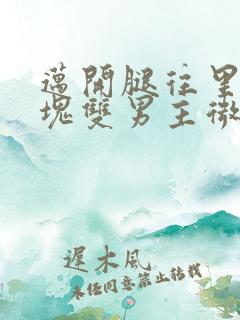 邁開腿往里
塊雙男主微
遲木風
未經同意禁止轉載